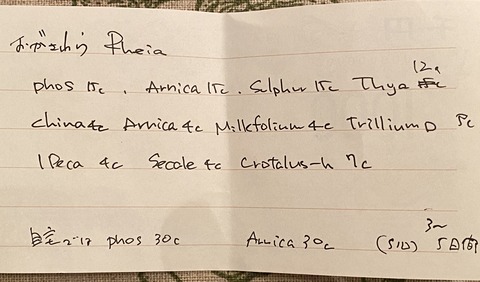 Rheia
phos 15c, Arnica 15c. Sulphur 15c Thya 12c
china 4c Arnica 4c Millkfolium 4c Trillium D 5c
IPeca 4c Secale 4c Crotalus-h 7c
自宅では phos 30c Arnica 30c (SID) 3〜5日間